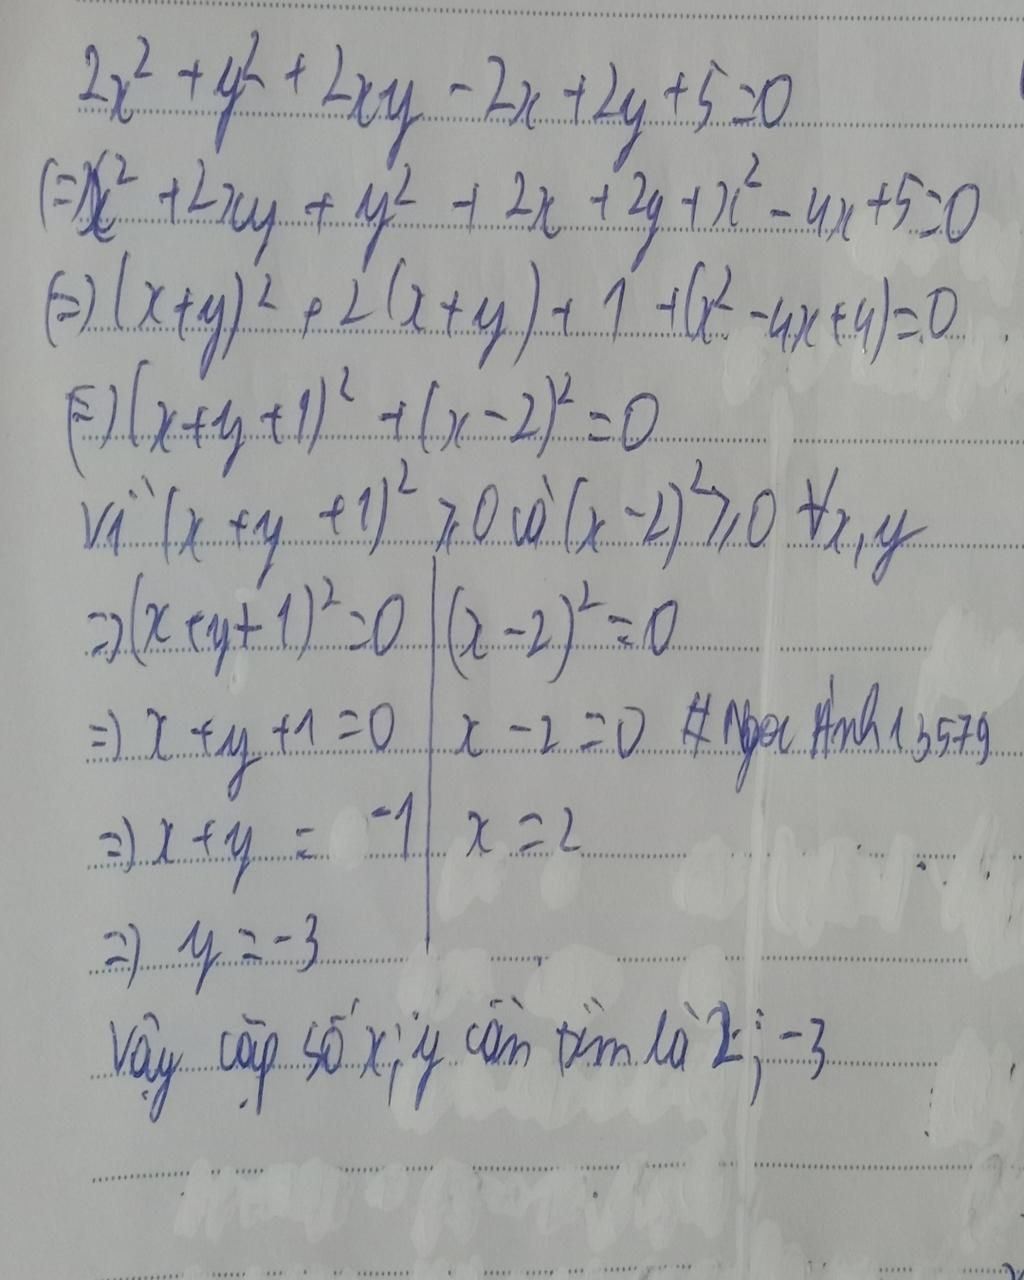 2x² + y² + 2xy - 2x + 2y + 5 = 0
(=) x² + 2xy + y² + 2x + 2y + x² - 4x + 5 = 0
(=) (x+y)² + 2(x+y) + 1 + (x² - 4x + 4) = 0
(=) (x+y+1)² + (x-2)² = 0
Vì (x+y+1)² ⩾ 0 và (x-2)² ⩾ 0 ∀x,y
=> (x+y+1)² = 0 | (x-2)² = 0
=> x+y+1 = 0 | x-2 = 0 # Ngọc Ánh 13579
=> x+y = -1 | x = 2
=> y = -3
Vậy cặp số x; y cần tìm là 2; -3